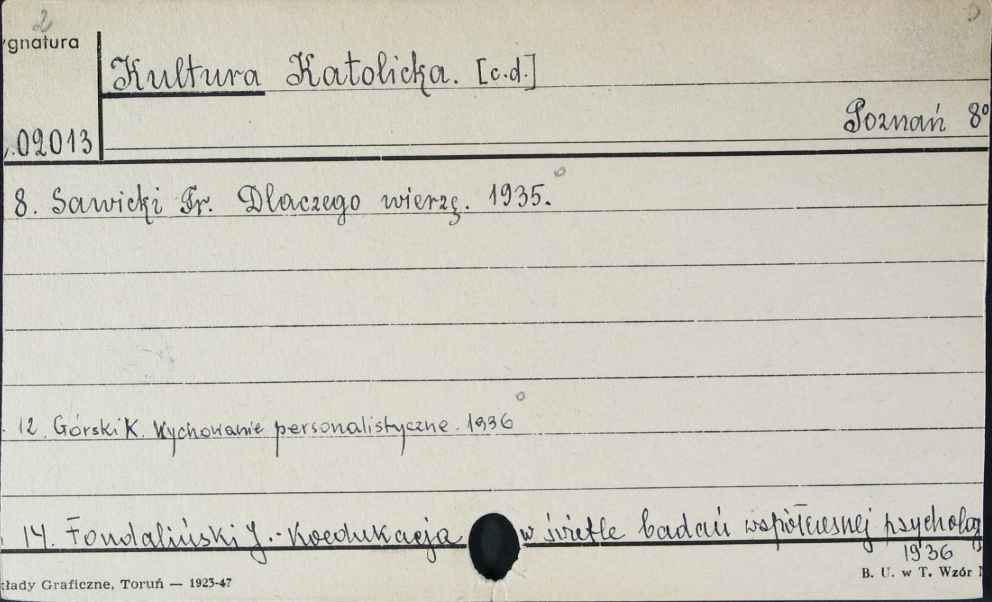 2
ygnatura
Kultura Katolicka. [c.d.]
Poznań 8°
.02013
8. Sawicki Fr. Dlaczego wierzę. 1935.
12. Górski K. Wychowanie personalistyczne. 1936
14. Fondaliński J. - Koedukacja w świetle badań współczesnej psycholog
1936
kłady Graficzne, Toruń — 1923-47
B. U. w T. Wzór